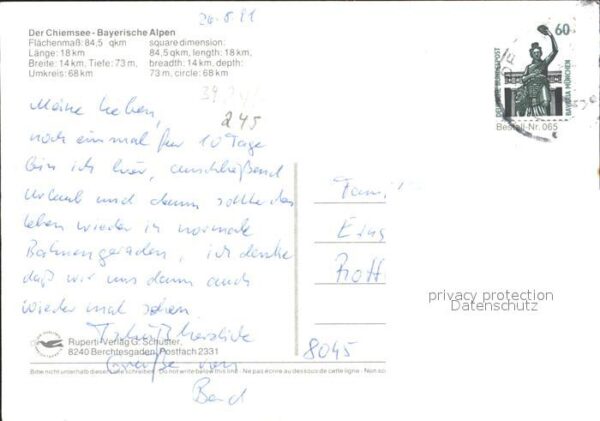 Der Chiemsee - Bayerische Alpen
Flächenmaß: 84,5 qkm square dimension:
Länge: 18 km 84,5 qkm, length: 18 km,
Breite: 14 km, Tiefe: 73 m, breadth: 14 km, depth:
Umkreis: 68 km 73 m, circle: 68 km
245
Meine Lieben,
noch einmal für 10 Tage
bin ich hier, anschließend
Urlaub und dann sollte das
Leben wieder in normale
Bahnen geraden, ich denke
daß wir uns dann auch
wieder mal sehen.
Tschüß herzliche
Grüße von
Bernd
Ruperti-Verlag G. Schuster,
8240 Berchtesgaden, Postfach 2331
Bitte nicht unterhalb dieser Linie schreiben · Do not write below this line · Ne pas écrire au dessous de cette ligne · Non sc
60
DEUTSCHE BUNDESPOST
BAVARIA MÜNCHEN
Bestell-Nr. 065
Famil
Rott
8045
privacy protection
Datenschutz